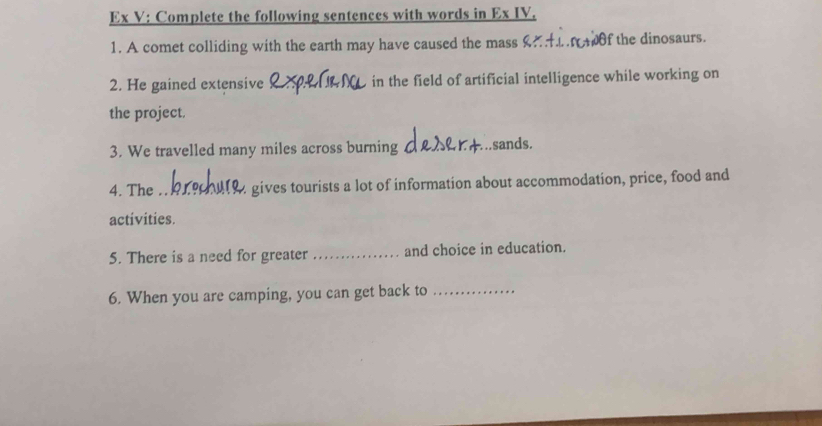 Ex V: Complete the following sentences with words in Ex IV.
1. A comet colliding with the earth may have caused the mass extinction of the dinosaurs.
2. He gained extensive experience in the field of artificial intelligence while working on
the project.
3. We travelled many miles across burning desert...sands.
4. The ..brochure. gives tourists a lot of information about accommodation, price, food and
activities.
5. There is a need for greater ................ and choice in education.
6. When you are camping, you can get back to ...............